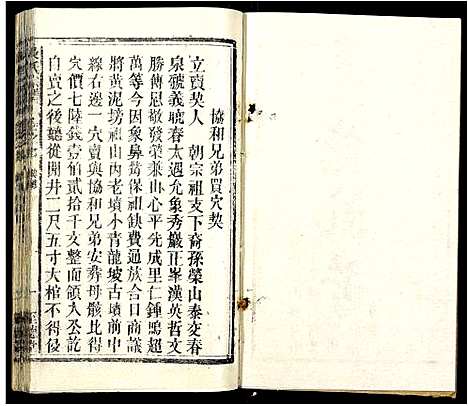 協和兄弟買穴契
立賣契人 朝宗祖支下裔孫榮山泰交春
泉號義琥春太遇允象秀巖正峯漢英哲文
勝傳恩敬發榮秉山心平先成里仁鍾鳴超
萬等今因象鼻壽保祖缺費過放合日商議
將黃泥塝祖山內老墳水青龍坡古墳前中
線右邊一穴賣與協和兄弟安葬母骸比得
穴價七陸錢壹佰貳拾千文整面領入丞訖
自賣之後聽從開井二尺五寸大棺不得侵